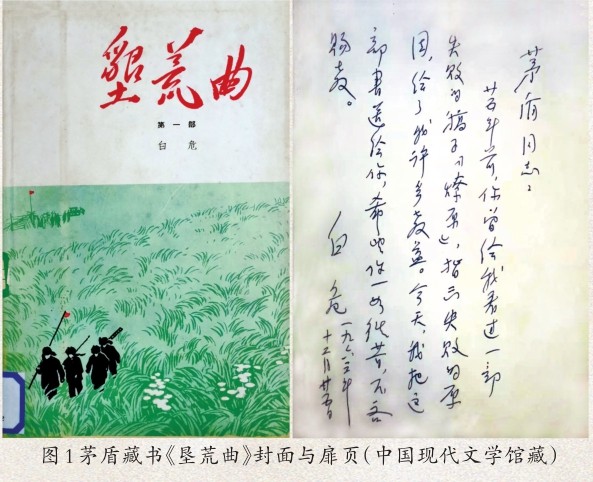 墾荒曲
第一部
白危
茅盾同志:
廿五年前,你曾给我看过一部
失败的稿子《燎原》,指出失败的原
因,给了我许多教益。今天,我把这
部书送给你,希望你一如往昔,不吝
赐教。
白危 一九六三年
十二月
图1 茅盾藏书《垦荒曲》封面与扉页(中国现代文学馆藏)